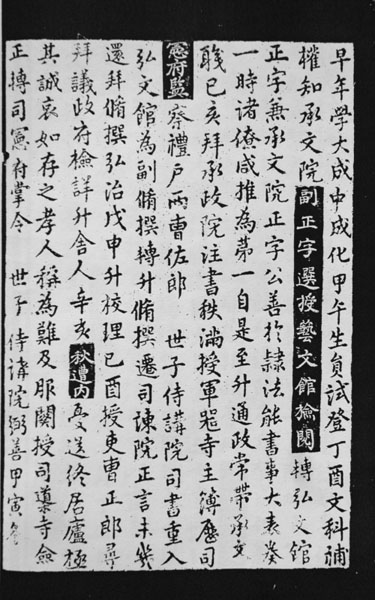 早年學大成中成化甲午生員試登丁酉文科補
權知承文院副正字選授藝文館檢閱轉弘文館
正字兼承文院正字公善於隷法能書事大表箋
一時諸僚咸推為第一自是至升通政常帶承文
職己亥拜承政院注書秩滿授軍器寺主簿歷司
憲府監察禮戶兩曹佐郎 世子侍講院司書重入
弘文館為副脩撰轉升脩撰遷司諫院正言未幾
還拜脩撰弘治戊申升校理己酉授吏曹正郎尋
拜議政府檢詳升舍人辛亥秋遭內憂送終居廬極
其誠哀如存之孝人稱為難及服闋授司䆃寺僉
正轉司憲府掌令 世子侍講院弼善甲寅冬